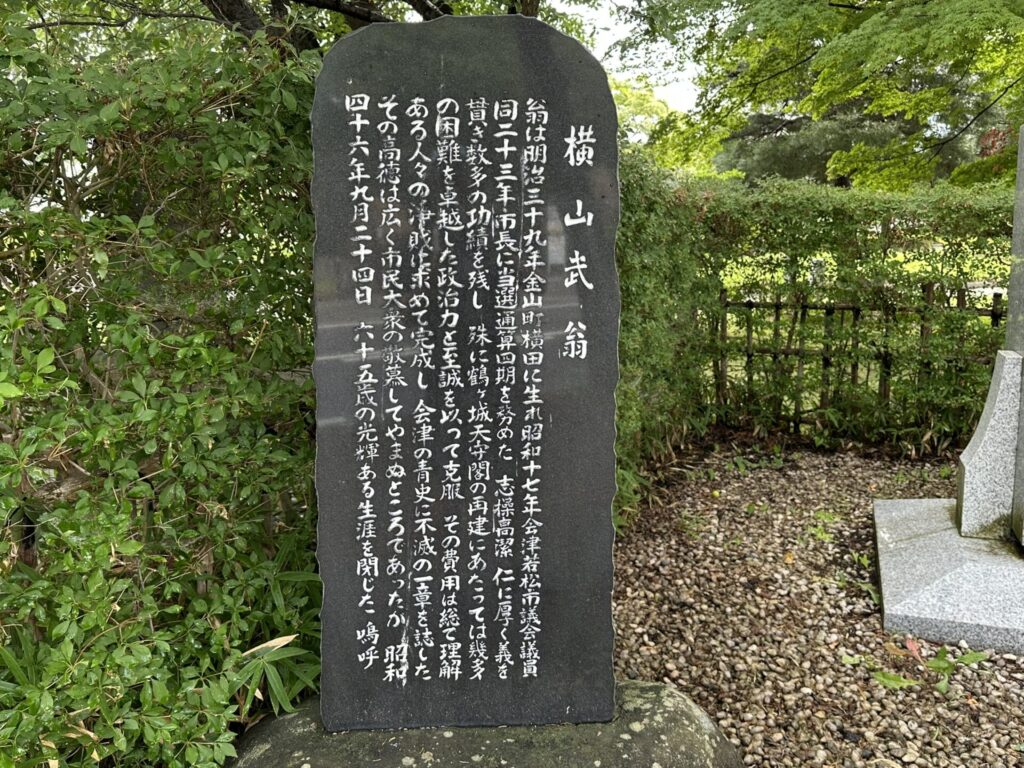 横山武翁
翁は明治三十九年金山町横田に生れ昭和十七年会津若松市議会議員
同二十三年市長に当選通算四期を努めた 志操高潔 仁に厚く義を
貫き数多の功績を残し 殊に鶴ヶ城天守閣の再建にあたっては幾多
の困難を卓越した政治力と至誠を以って克服 その費用は総て理解
ある人々の浄財に求めて完成し 会津の青史に不滅の一章を誌した
その高徳は広く市民大衆の敬慕してやまぬところであったが 昭和
四十六年九月二十四日 六十五歳の光輝ある生涯を閉じた 嗚呼